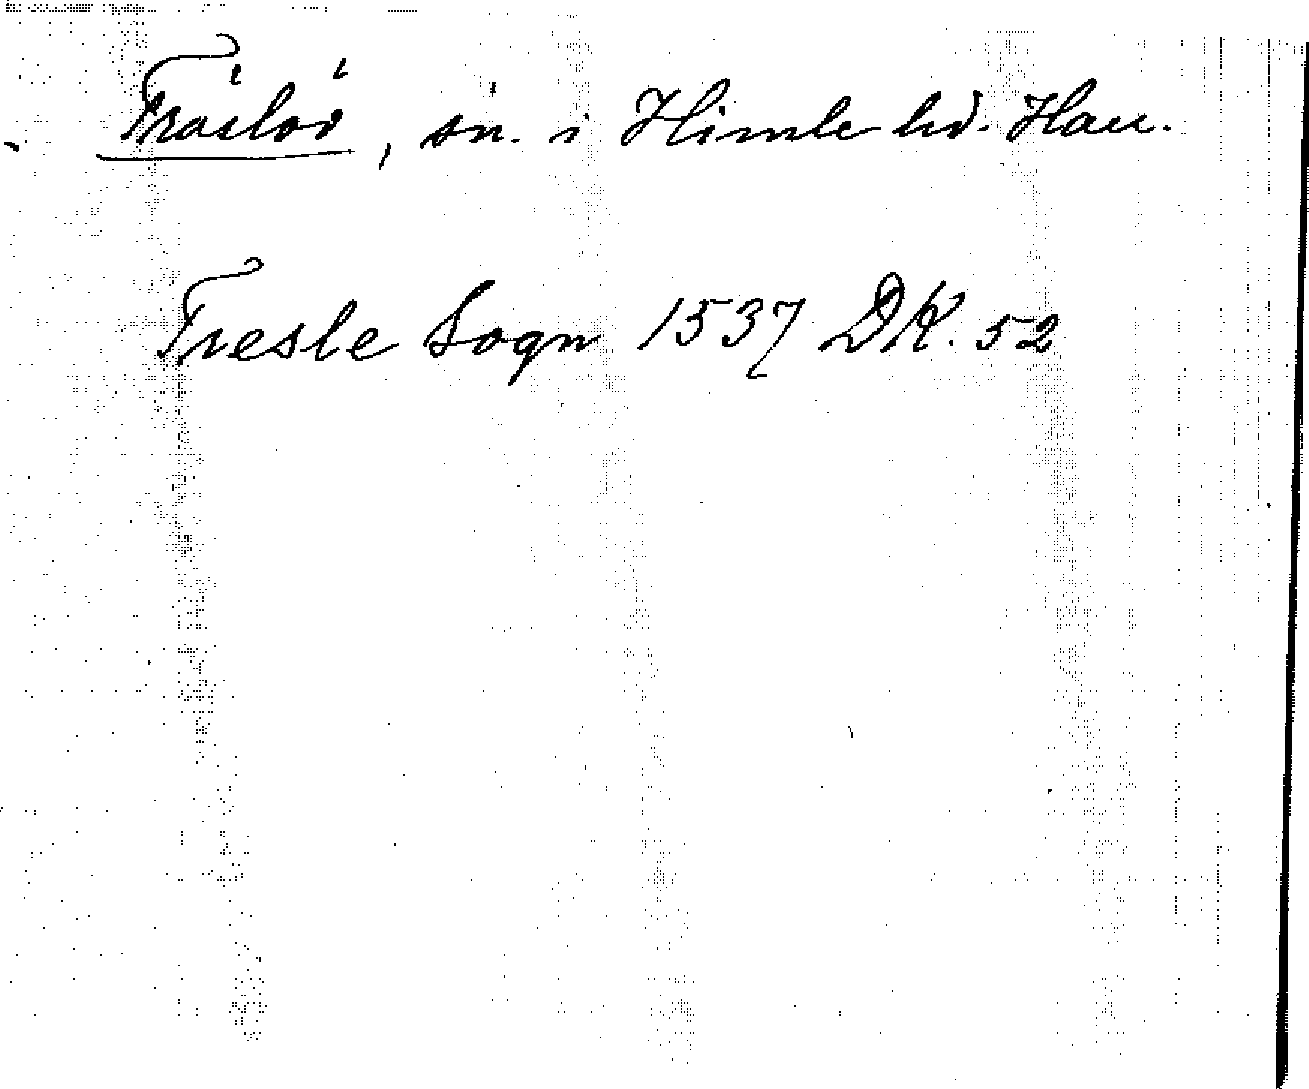 Träslöv, sn. i Himle hd. Hall.
Tresle Sogn 1537 DK. 52